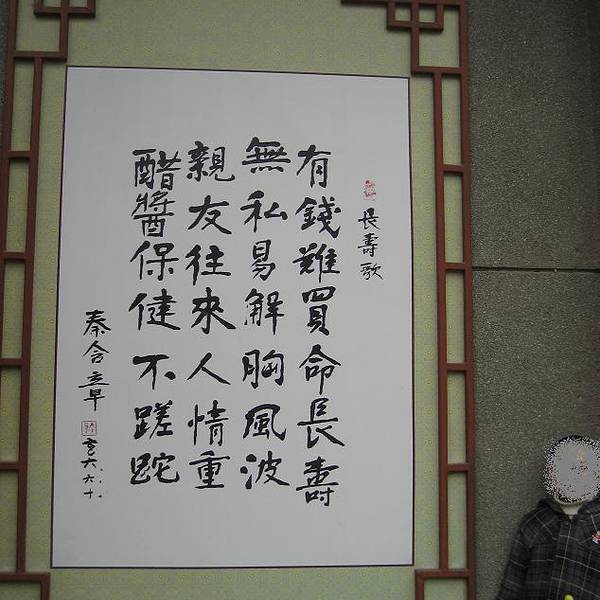 長壽歌
有錢難買命長壽
無私易解胸風波
親友往來人情重
醋醬保健不蹉跎
秦含章
六.六.十.